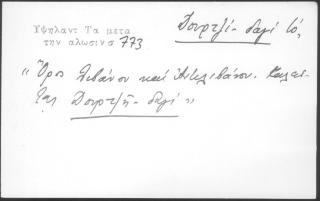 Υψηλαντ Τα μετα
την αλωσιν σ 773
Δουρτζί-δαγί τό,
"Όρος Λιβάνου καί Ἀντιλιβάνου. Καλεῖ-
ται Δουρτζῆ-δαγί"